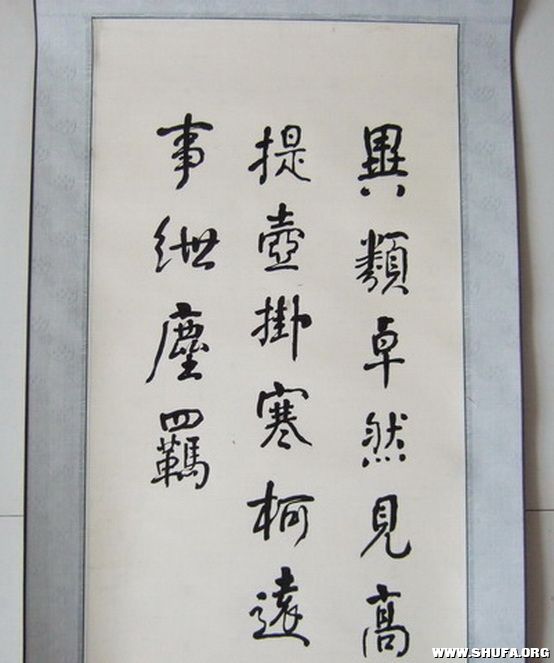 異類卓然見高
提壺掛寒柯遠
事紲塵羈
WWW.SHUFA.ORG